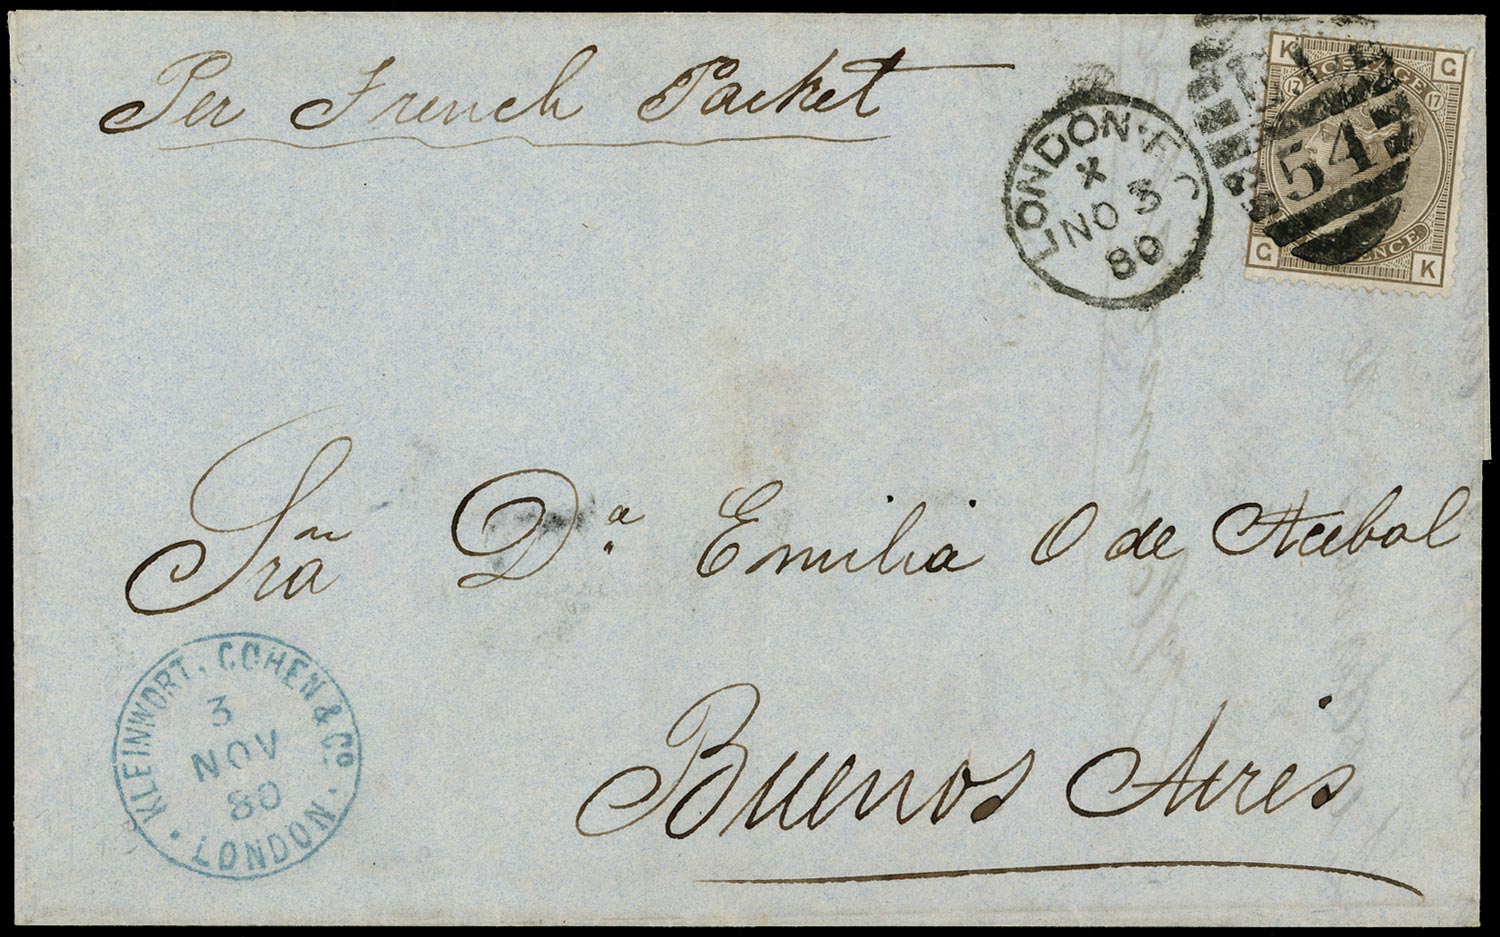 Per French Packet
LONDON·E C
X
NO 3
80
K POSTAGE G
17 17
54
PENCE
G K
Sra Da Emilia O de Acebal
KLEINWORT, COHEN & Co
3
NOV
80
· LONDON ·
Buenos Aires